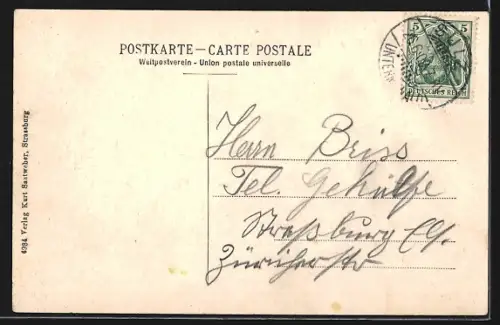 POSTKARTE — CARTE POSTALE
Weltpostverein - Union postale universelle
5 5
DEUTSCHES REICH
Herrn Briss
Tel. Gehülfe
Straßburg E/.
Züricherstr
4984 Verlag Kurt Sautweber, Strassburg